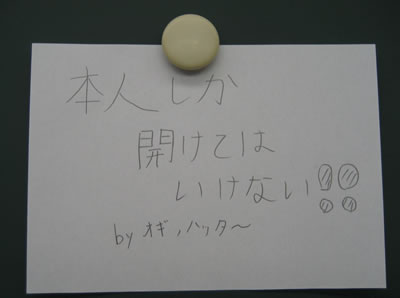 本人しか
開けては
いけない!!
by オギノハッター〜